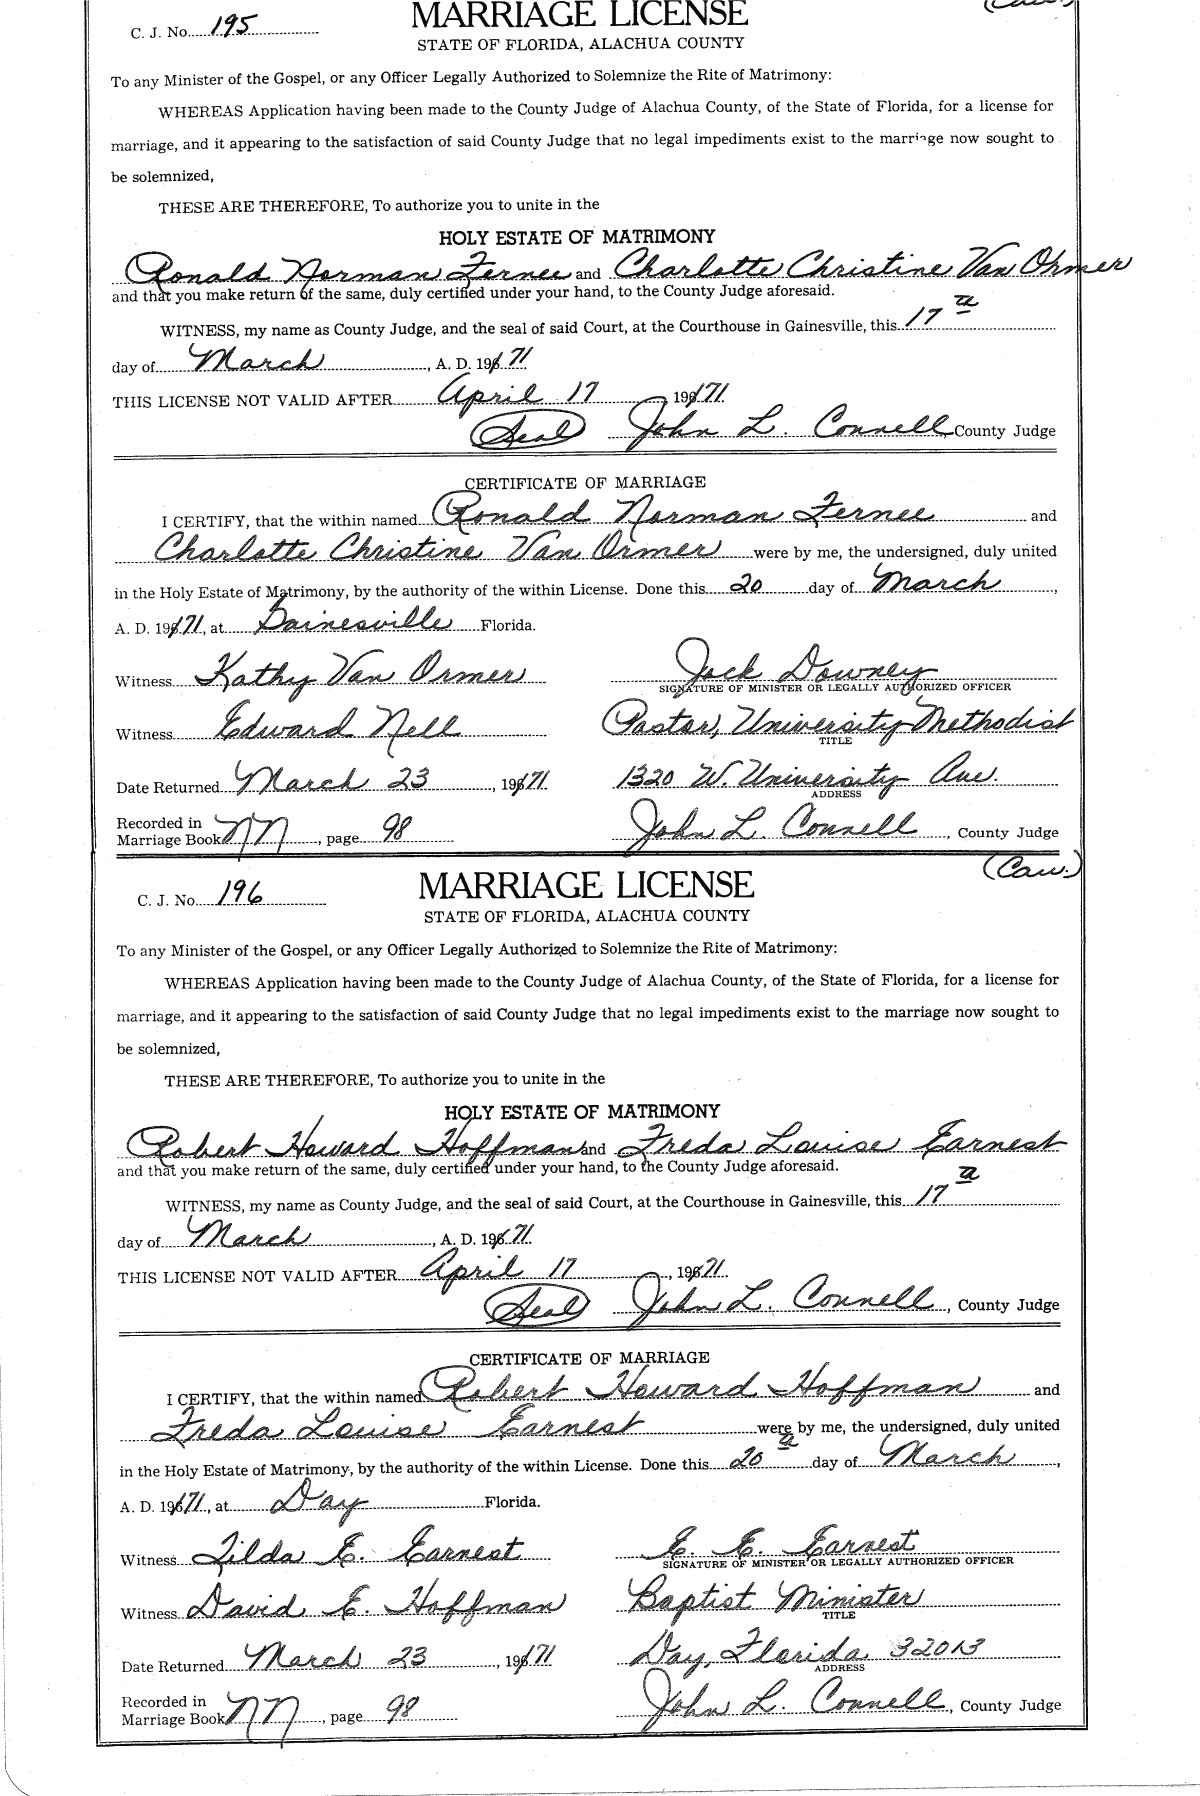 C. J. No. 195
MARRIAGE LICENSE
STATE OF FLORIDA, ALACHUA COUNTY
To any Minister of the Gospel, or any Officer Legally Authorized to Solemnize the Rite of Matrimony:
WHEREAS Application having been made to the County Judge of Alachua County, of the State of Florida, for a license for
marriage, and it appearing to the satisfaction of said County Judge that no legal impediments exist to the marriage now sought to
be solemnized,
THESE ARE THEREFORE, To authorize you to unite in the
HOLY ESTATE OF MATRIMONY
Ronald Norman Fernee and Charlotte Christine Van Ormer
and that you make return of the same, duly certified under your hand, to the County Judge aforesaid.
WITNESS, my name as County Judge, and the seal of said Court, at the Courthouse in Gainesville, this 17th
day of March, A. D. 1971
THIS LICENSE NOT VALID AFTER April 17, 1971
(Seal) John L. Connell County Judge
CERTIFICATE OF MARRIAGE
I CERTIFY, that the within named Ronald Norman Fernee and
Charlotte Christine Van Ormer were by me, the undersigned, duly united
in the Holy Estate of Matrimony, by the authority of the within License. Done this 20 day of March,
A. D. 1971, at Gainesville Florida.
Witness Kathy Van Ormer Jack Downey
SIGNATURE OF MINISTER OR LEGALLY AUTHORIZED OFFICER
Witness Edward Nell Pastor, University Methodist
TITLE
Date Returned March 23, 1971 1320 W. University Ave.
ADDRESS
Recorded in
Marriage Book NN, page 98 John L. Connell, County Judge
(Caw.)
C. J. No. 196
MARRIAGE LICENSE
STATE OF FLORIDA, ALACHUA COUNTY
To any Minister of the Gospel, or any Officer Legally Authorized to Solemnize the Rite of Matrimony:
WHEREAS Application having been made to the County Judge of Alachua County, of the State of Florida, for a license for
marriage, and it appearing to the satisfaction of said County Judge that no legal impediments exist to the marriage now sought to
be solemnized,
THESE ARE THEREFORE, To authorize you to unite in the
HOLY ESTATE OF MATRIMONY
Robert Howard Hoffman and Freda Louise Earnest
and that you make return of the same, duly certified under your hand, to the County Judge aforesaid.
WITNESS, my name as County Judge, and the seal of said Court, at the Courthouse in Gainesville, this 17th
day of March, A. D. 1971
THIS LICENSE NOT VALID AFTER April 17, 1971
(Seal) John L. Connell, County Judge
CERTIFICATE OF MARRIAGE
I CERTIFY, that the within named Robert Howard Hoffman and
Freda Louise Earnest were by me, the undersigned, duly united
in the Holy Estate of Matrimony, by the authority of the within License. Done this 20th day of March,
A. D. 1971, at Day Florida.
Witness Zilda E. Earnest E. E. Earnest
SIGNATURE OF MINISTER OR LEGALLY AUTHORIZED OFFICER
Witness David E. Hoffman Baptist Minister
TITLE
Date Returned March 23, 1971 Day, Florida 32013
ADDRESS
Recorded in
Marriage Book NN, page 98 John L. Connell, County Judge